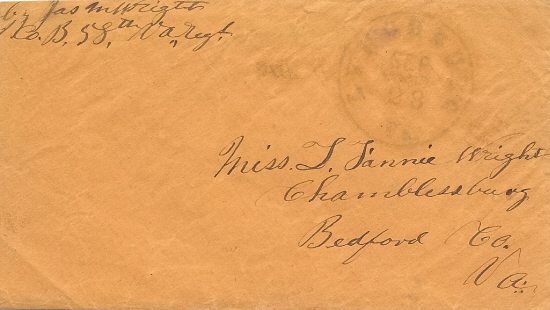 Jas m Wright
Co. B, 58th Va, Regt.
Miss. L. Fannie Wright
Chamblessburg
Bedford Co.
Va.